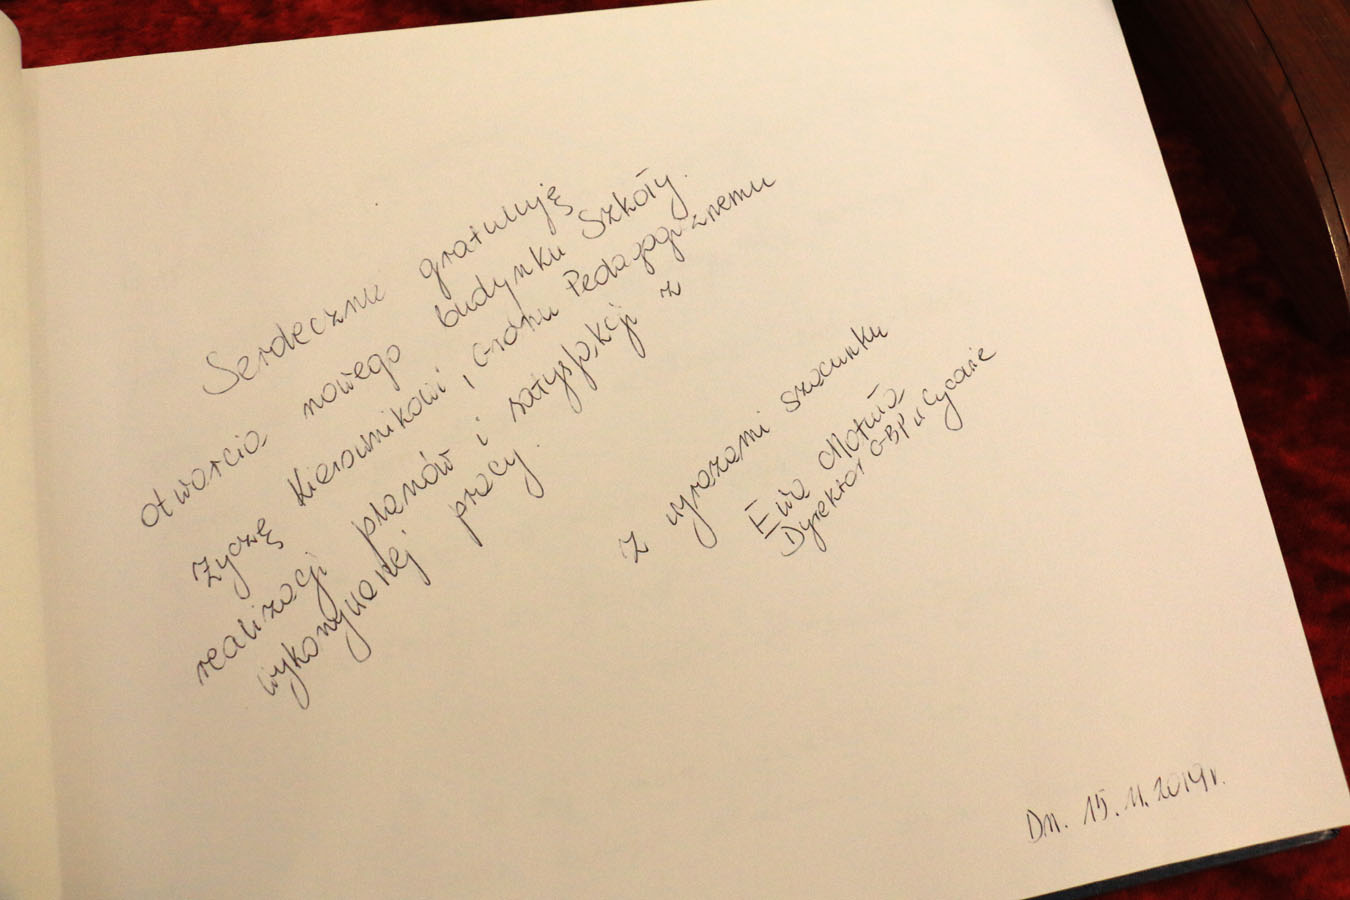 Serdecznie gratuluję
otwarcia nowego budynku Szkoły.
Życzę Kierownikowi, Gronu Pedagogicznemu
realizacji planów i satysfakcji z
wykonywanej pracy.
Z wyrazami szacunku
Ewa
Dyrektor GBP w Cycowie
Dn. 15.11.2019r.